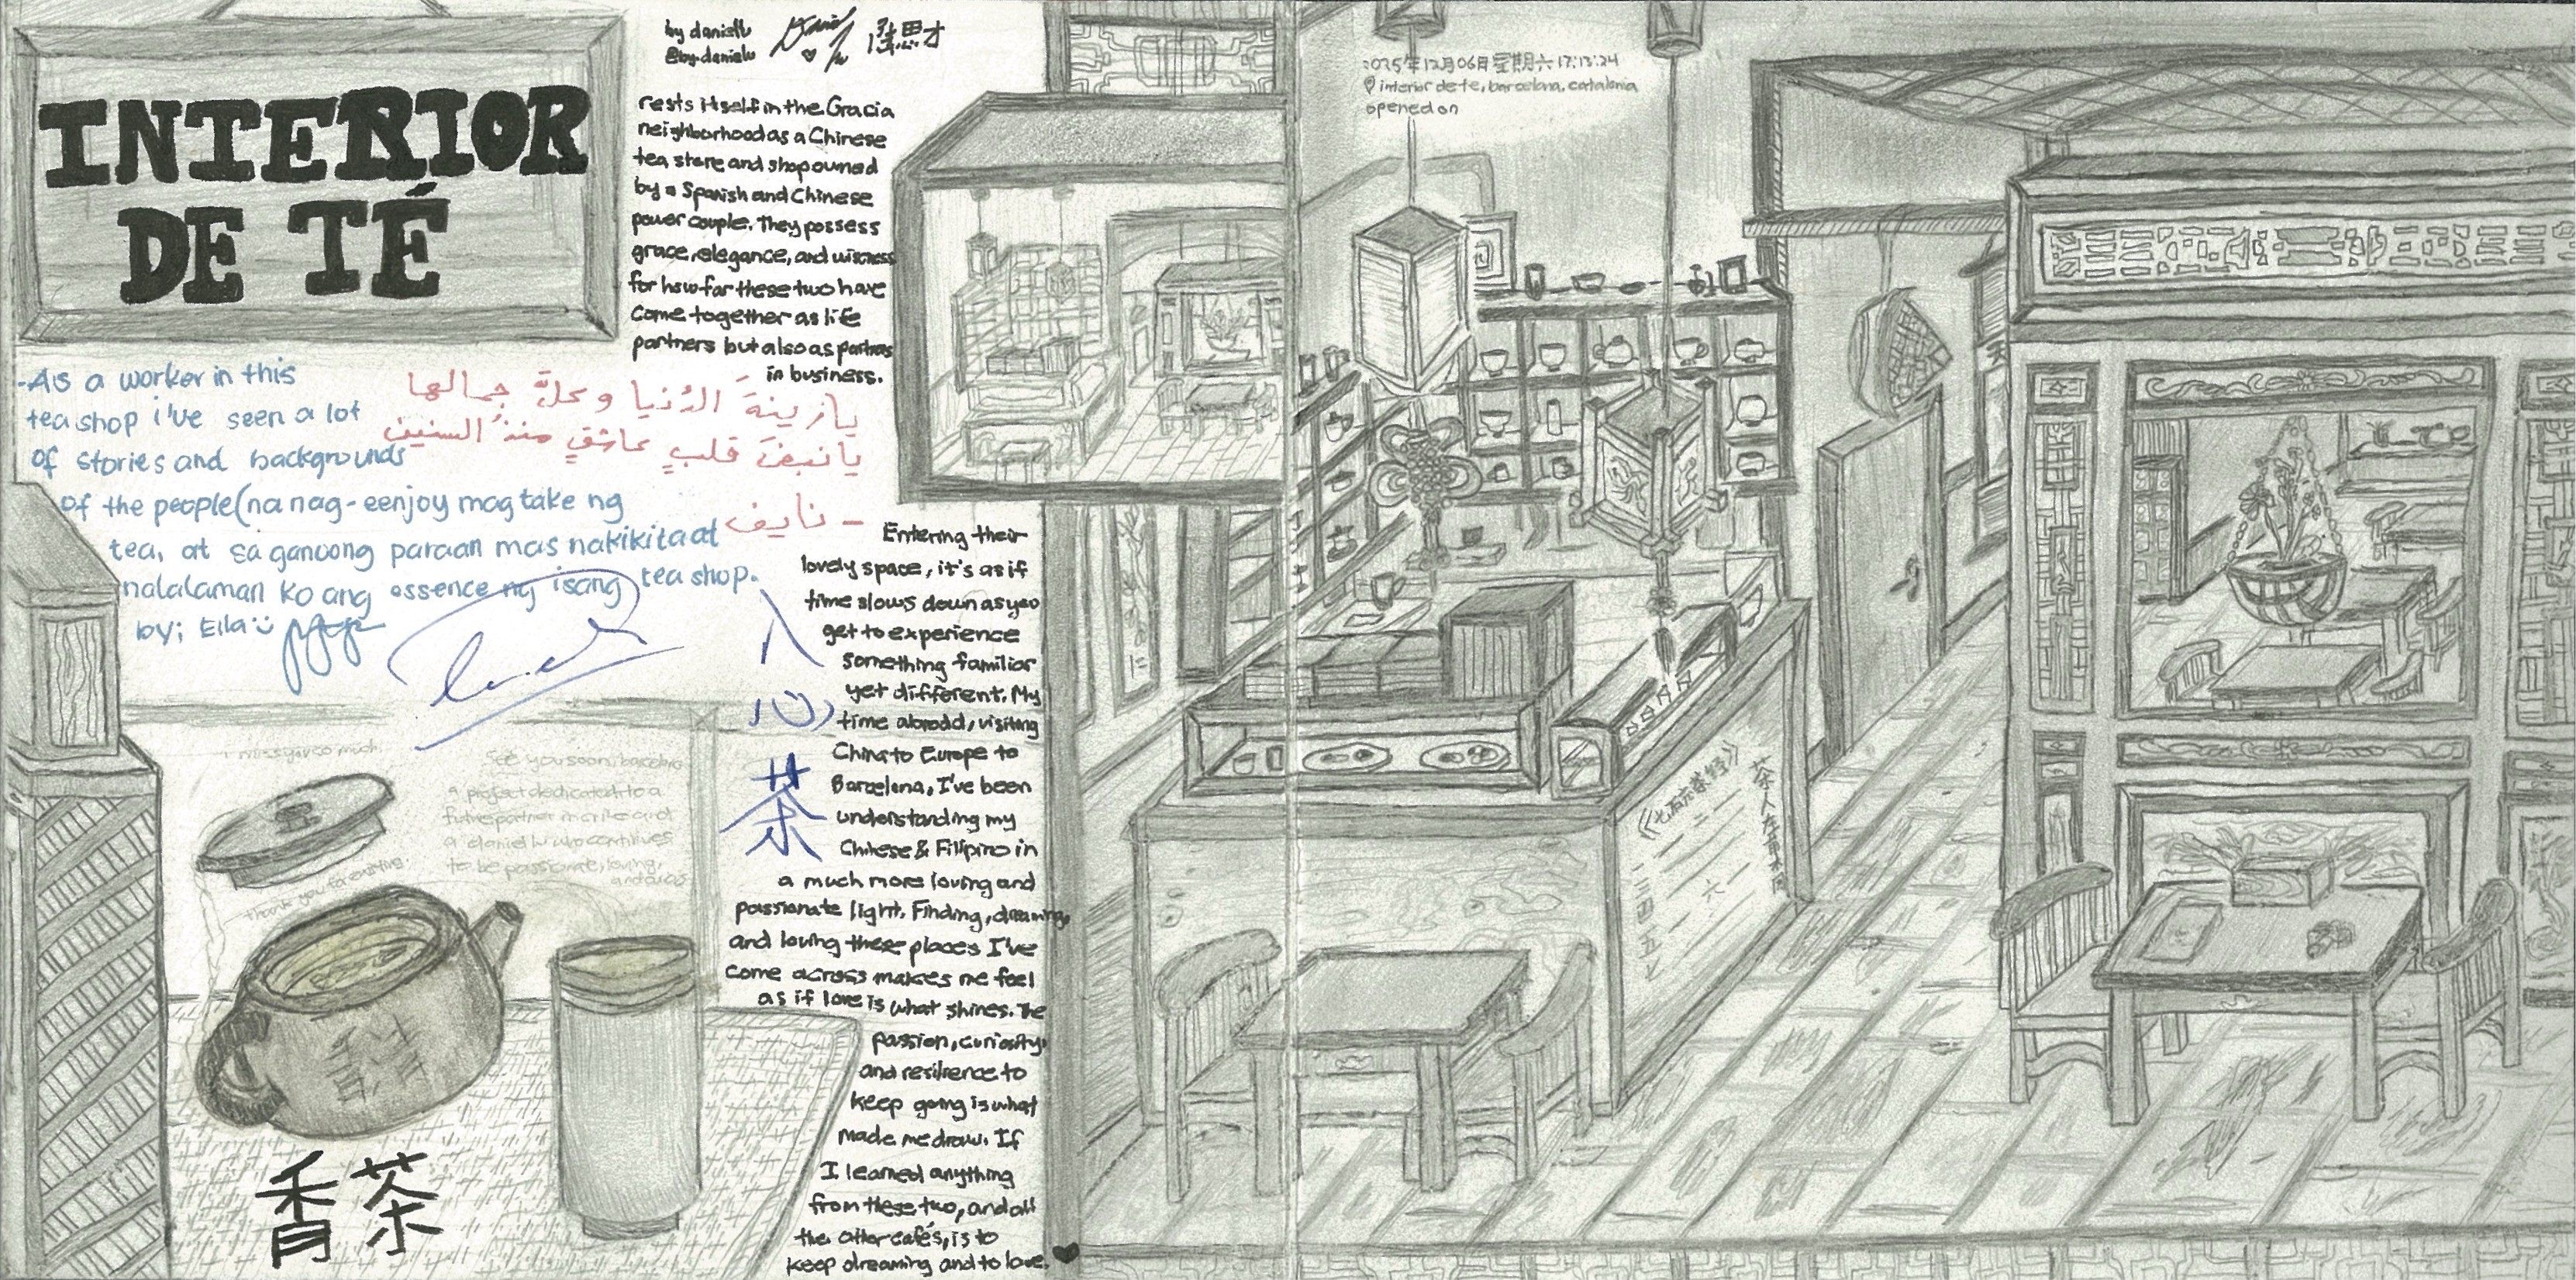 INTERIOR
DE TÉ
by danielw
@by.danielw
rests itself in the Gracia
neighborhood as a Chinese
tea store and shop owned
by a Spanish and Chinese
power couple. They possess
grace, elegance, and
for how far these two have
come together as life
partners but also as partners
in business.
-As a worker in this
tea shop i've seen a lot
of stories and backgrounds
of the people (na nag-eenjoy mag take ng
tea, at sa ganoong paraan mas nakikita at
nalalaman ko ang essence ng isang tea shop.
by; Eila
يا زينةَ الدُنيا وكلَّ جمالها
يا نبضَ قلبٍ عاشقٍ منذُ السنين
- نايف
Entering their
lovely space, it's as if
time slows down as you
get to experience
something familiar
yet different. My
time abroad, visiting
China to Europe to
Barcelona, I've been
understanding my
Chinese & Filipino in
a much more loving and
passionate light. Finding, dreaming,
and loving these places I've
come across makes me feel
as if love is what shines. The
passion, curiosity,
and resilience to
keep going is what
made me draw. If
I learned anything
from these two, and all
the other cafés, is to
keep dreaming and to love.
八
心
茶
i miss you so much
See you soon, barcelona
a project dedicated to a
future partner in crime and
a daniel w who continues
to be passionate, loving,
thank you for existing.
香茶
2025年12月06日星期六 17:13:24
interior de te, barcelona, catalonia
opened on